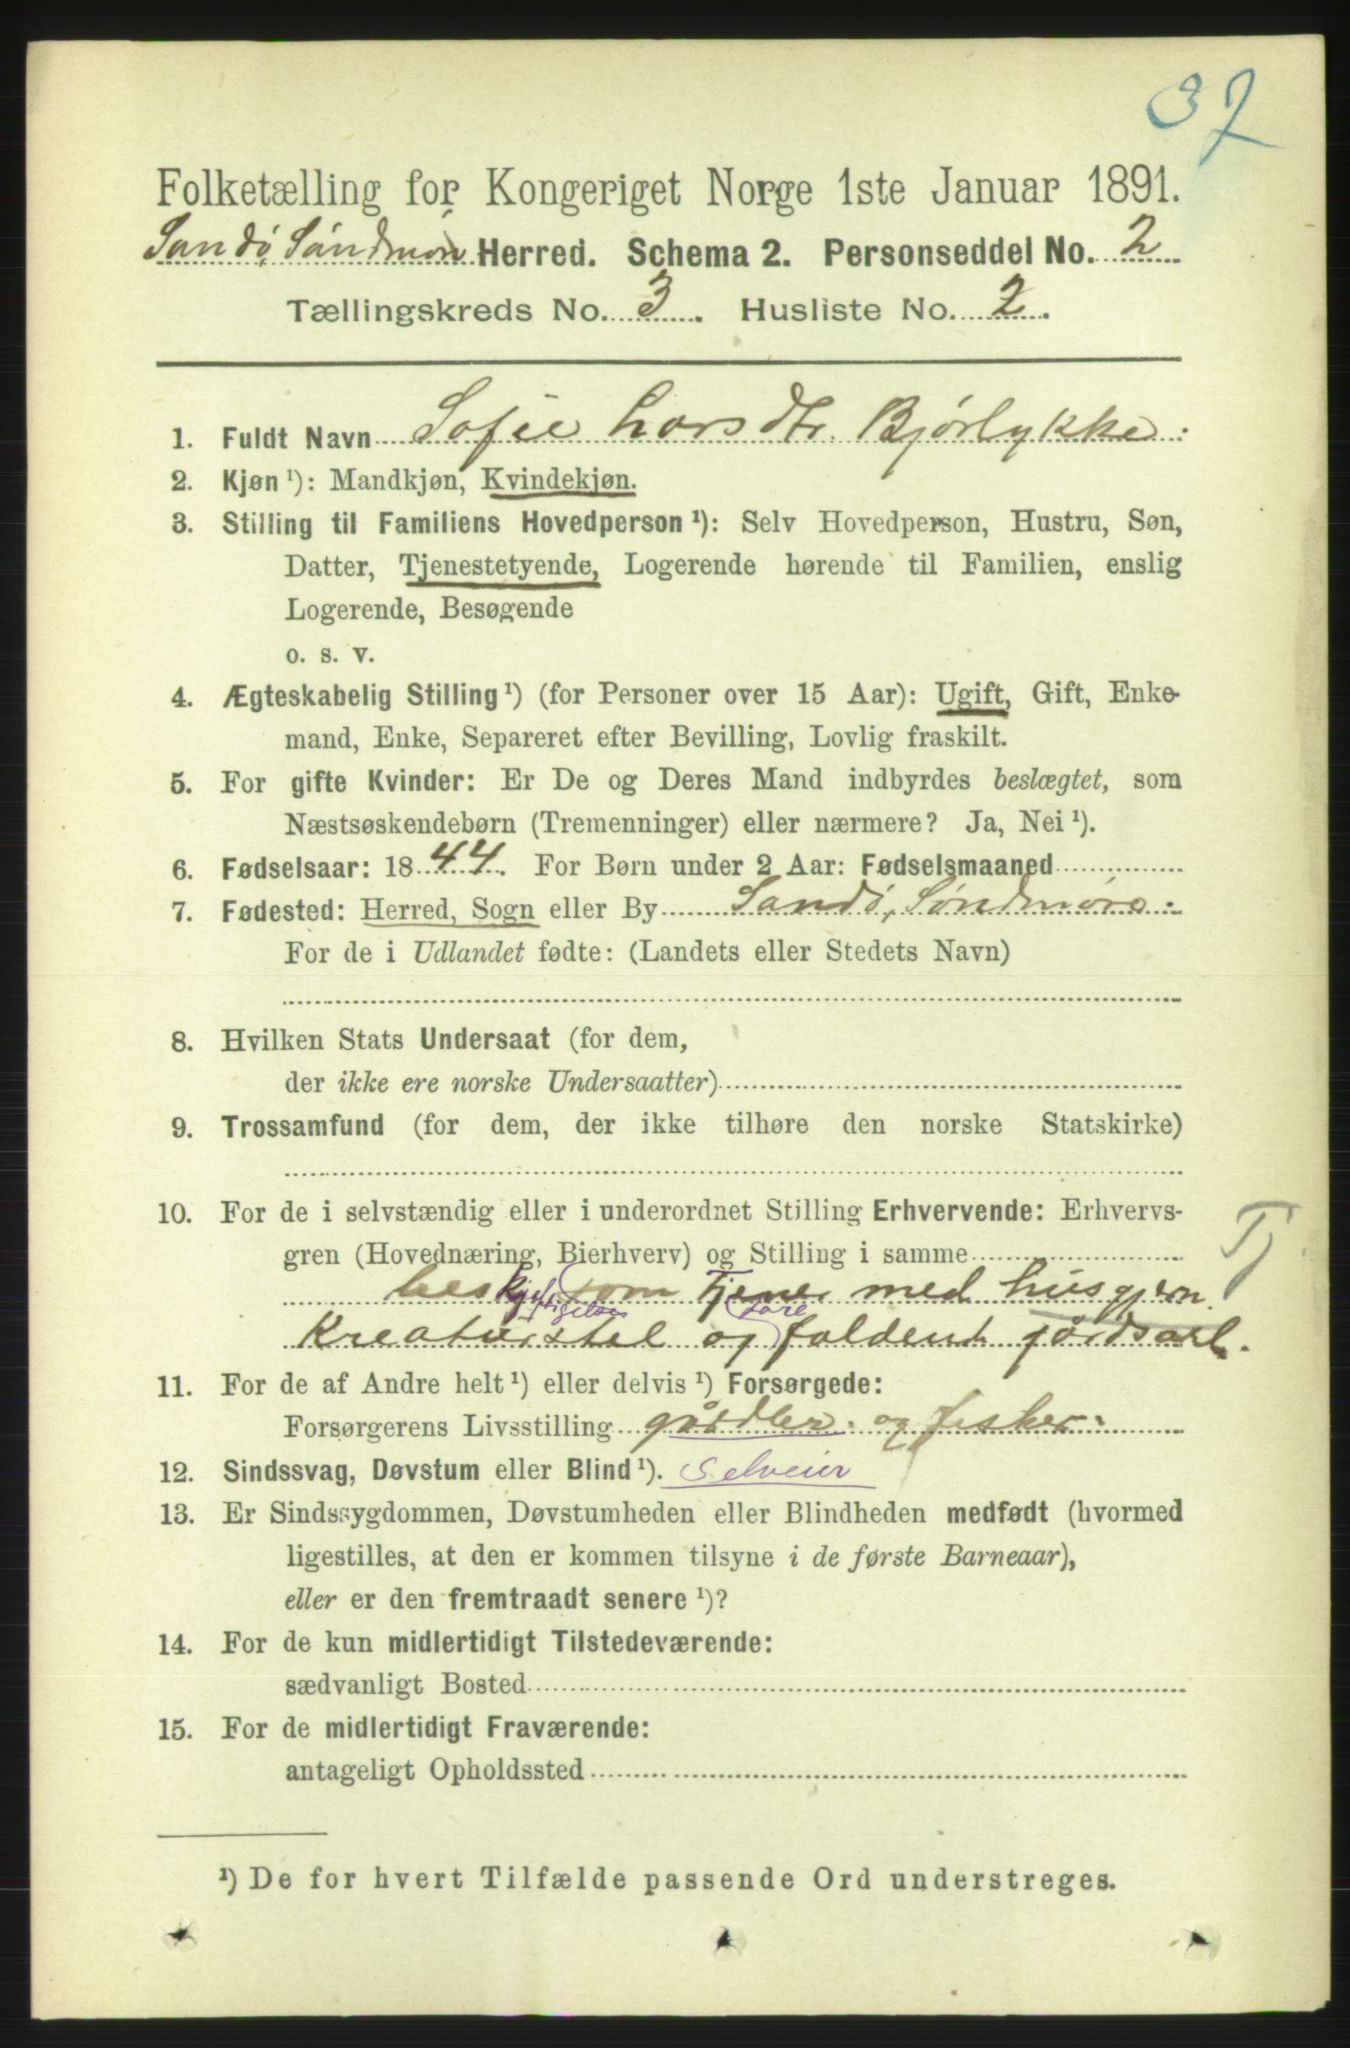 37
Folketælling for Kongeriget Norge 1ste Januar 1891.
Sandø, Søndmør Herred. Schema 2. Personseddel No. 2
Tællingskreds No. 3. Husliste No. 2.
1. Fuldt Navn Sofie Larsdtr. Bjørlykke.
2. Kjøn ¹): Mandkjøn, Kvindekjøn.
3. Stilling til Familiens Hovedperson ¹): Selv Hovedperson, Hustru, Søn,
Datter, Tjenestetyende, Logerende hørende til Familien, enslig
Logerende, Besøgende
o. s. v.
4. Ægteskabelig Stilling ¹) (for Personer over 15 Aar): Ugift, Gift, Enke-
mand, Enke, Separeret efter Bevilling, Lovlig fraskilt.
5. For gifte Kvinder: Er De og Deres Mand indbyrdes beslægtet, som
Næstsøskendebørn (Tremenninger) eller nærmere? Ja, Nei ¹).
6. Fødselsaar: 1844. For Børn under 2 Aar: Fødselsmaaned
7. Fødested: Herred, Sogn eller By Sandø, Søndmøre.
For de i Udlandet fødte: (Landets eller Stedets Navn)
8. Hvilken Stats Undersaat (for dem,
der ikke ere norske Undersaatter)
9. Trossamfund (for dem, der ikke tilhøre den norske Statskirke)
10. For de i selvstændig eller i underordnet Stilling Erhvervende: Erhvervs-
gren (Hovednæring, Bierhverv) og Stilling i samme
Tj
som Tjener med husgjern.
Kreaturstel og foldent jordsarb.
11. For de af Andre helt ¹) eller delvis ¹) Forsørgede:
Forsørgerens Livsstilling gårdbr. og fisker.
12. Sindssvag, Døvstum eller Blind ¹). Selveier
13. Er Sindssygdommen, Døvstumheden eller Blindheden medfødt (hvormed
ligestilles, at den er kommen tilsyne i de første Barneaar),
eller er den fremtraadt senere ¹)?
14. For de kun midlertidigt Tilstedeværende:
sædvanligt Bosted
15. For de midlertidigt Fraværende:
antageligt Opholdssted
¹) De for hvert Tilfælde passende Ord understreges.